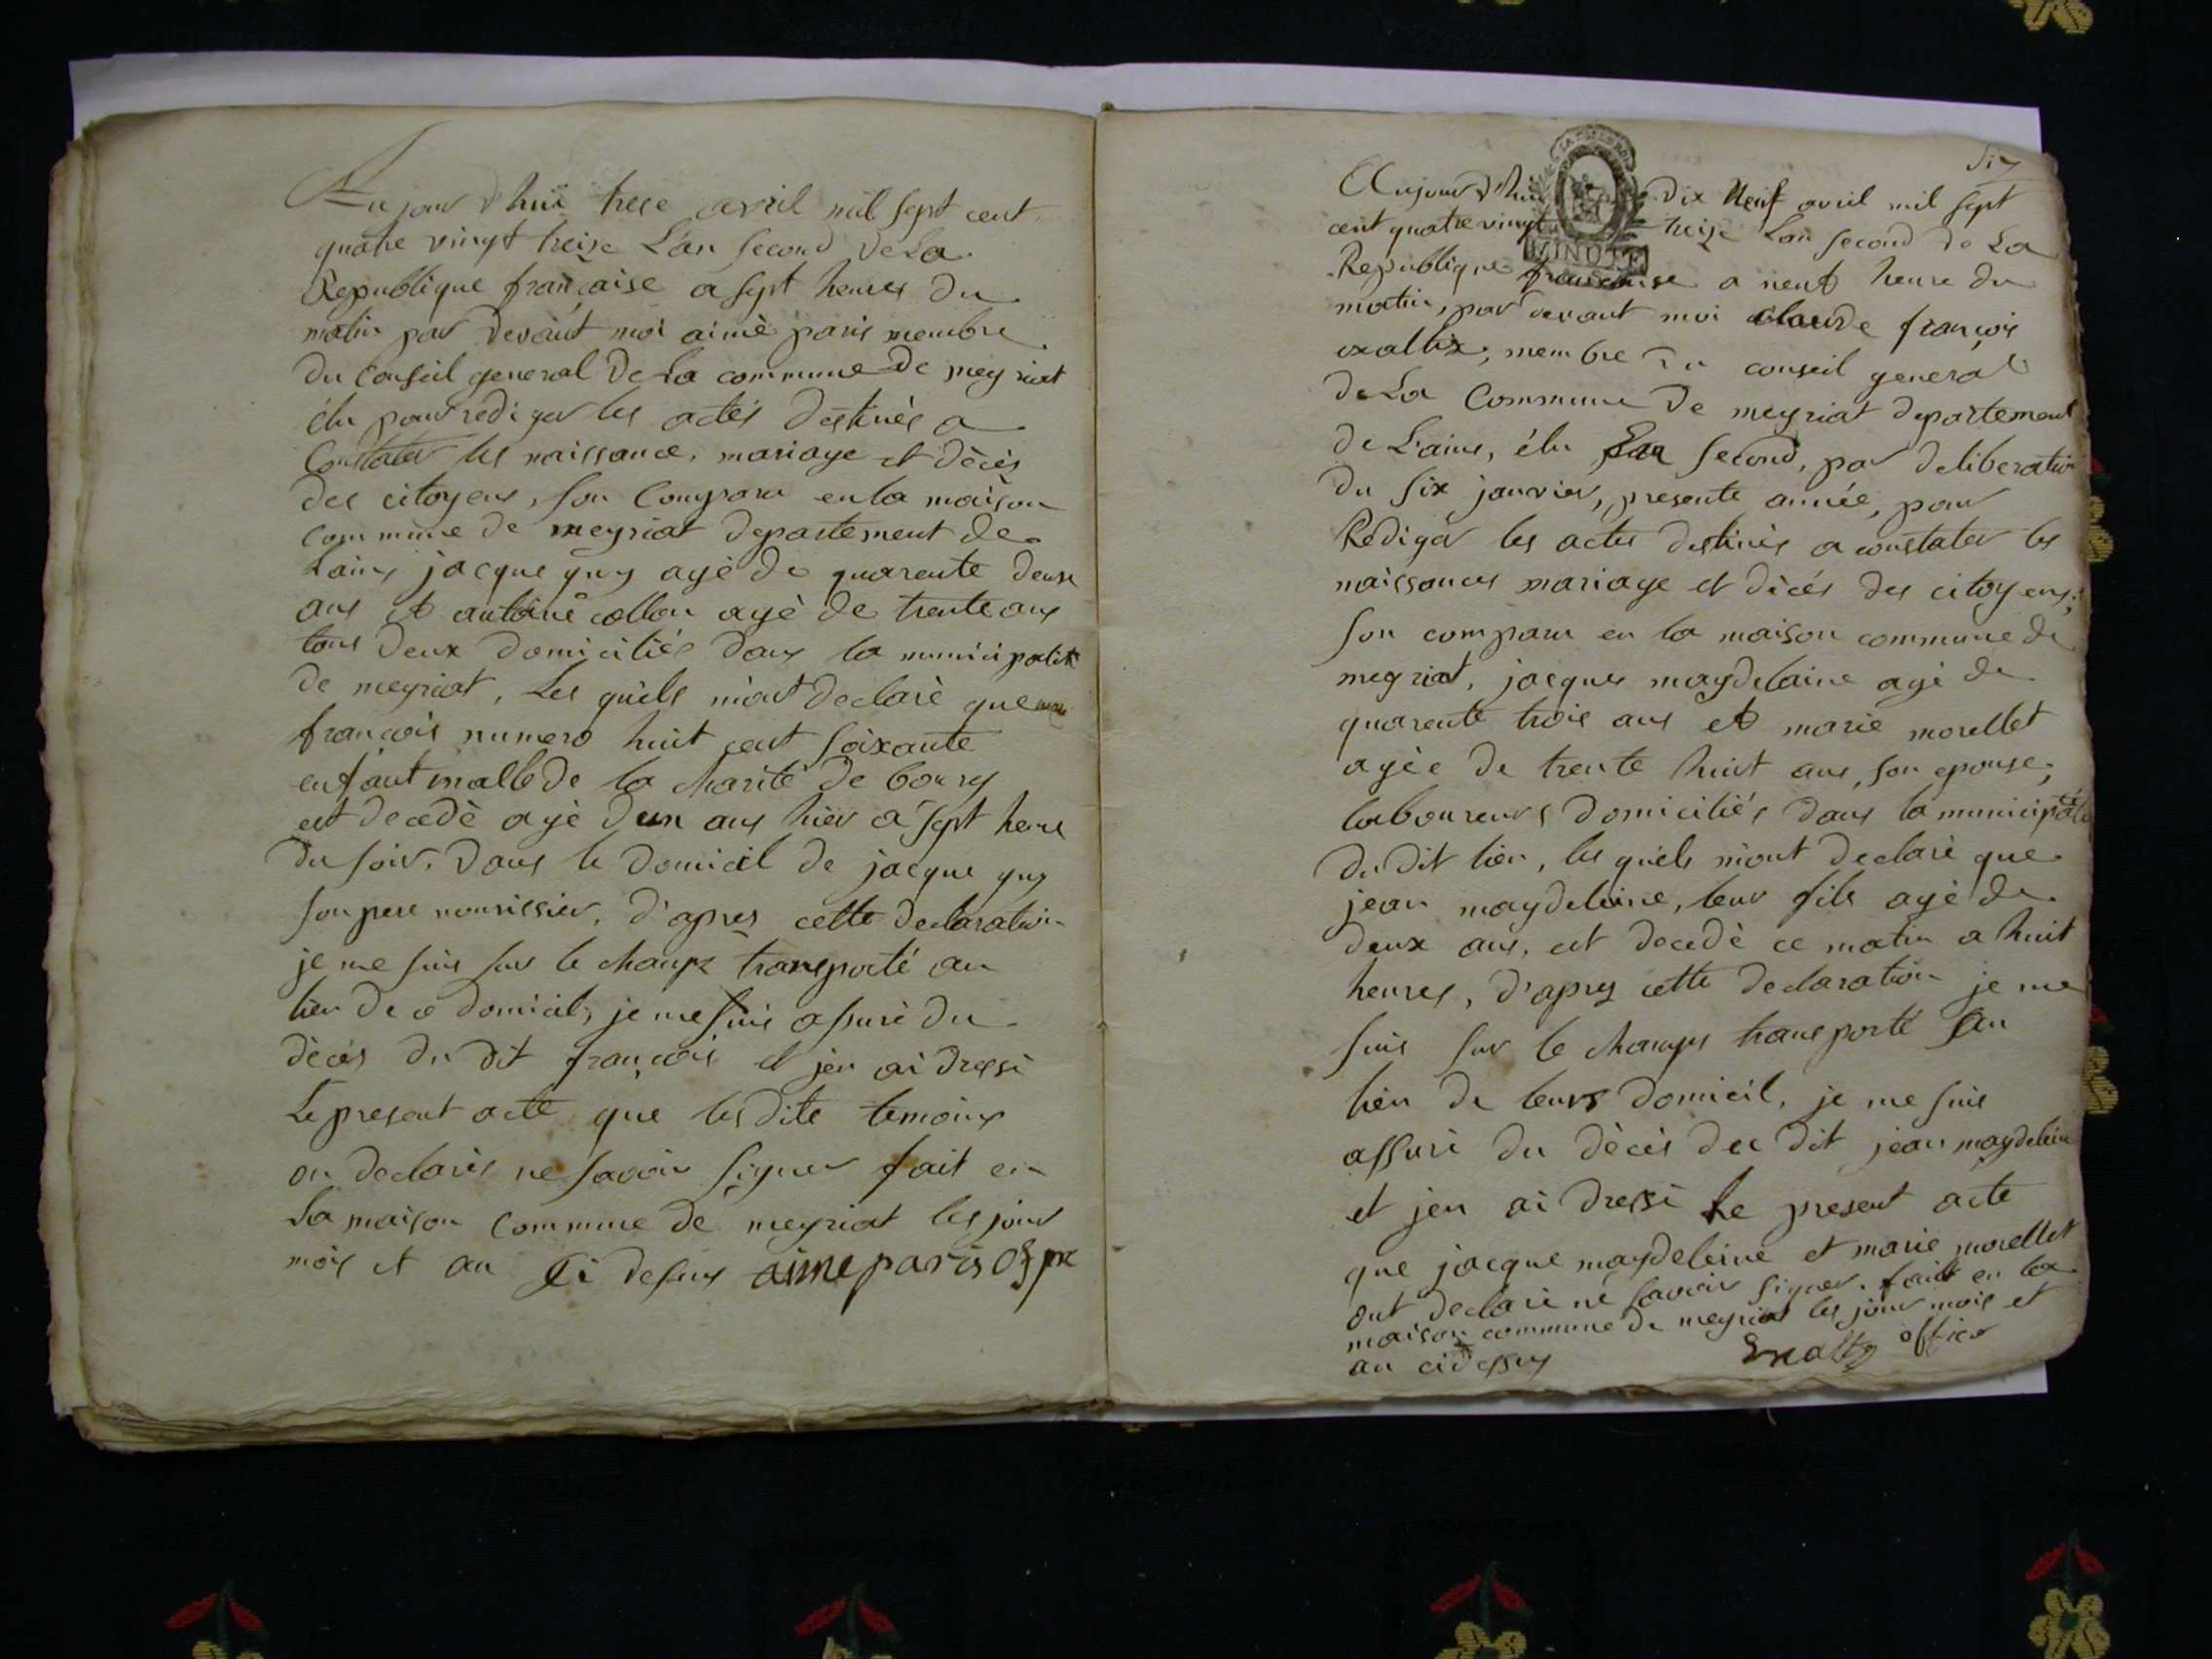 Au jour d'hui trese avril mil sept cent
quatre vingt treise L'an second De La
Republique française a sept heures Du
matin par devant moi aimé paris membre
Du Conseil general De La commune De meyriat
élu pour rediger les actes destinés a
Constater les naissance, mariage et décès
des citoyens, son Comparu en la maison
commune de meyriat departement de
Lain, jacque guy agé de quarente deux
ans et antoine collon agé de trente ans
tous deux domiciliés dans la municipalité
de meyriat, Les quels m'ont declaré que
françois numero huit cent soixante
enfant malle de la charité de bourg
est decedé agé d'un ans hier a sept heure
du soir, dans le domicil de jacque guy
son pere nourissier, d'apres cette declaration
je me suis sur le champs transporté au
lieu de ce domicil, je me suis assuré du
décés du dit françois et jen ai dressé
Le present acte que les dits temoins
on declarés ne savoir signer fait en
La maison commune de meyriat les jour
mois et an Ci desus aime paris of pc
six
Aujourd'hui dix Neuf avril mil sept
cent quatre vingt treize L'an second de La
MINUTE
Republique française a neuf heure du
matin, par devant moi claude françois
exaltix, membre du conseil general
de La Commune De meyriat departement
de L'ains, élu Lan second, par deliberation
du six janvier, presente année, pour
Rediger les actes destinés a constater les
naissances mariage et décés des citoyens,
son comparu en la maison commune de
meyriat, jacques magdelaine agé de
quarente trois ans et marie morellet
agée de trente huit ans, son epouse,
laboureurs domiciliés dans la municipalité
du dit lieu, les quels m'ont declaré que
jean magdeleine, leur fils agé de
deux ans, est decedé ce matin a huit
heures, d'apres cette declaration je me
suis sur le champs transporté au
lieu de leurs domicil, je me suis
assuré du décés du dit jean magdeleine
et jen ai dressé Le present acte
que jacque magdeleine et marie morellet
ont declaré ne savoir signer. fait en la
maison commune de meyriat les jour mois et
an ci dessus officier